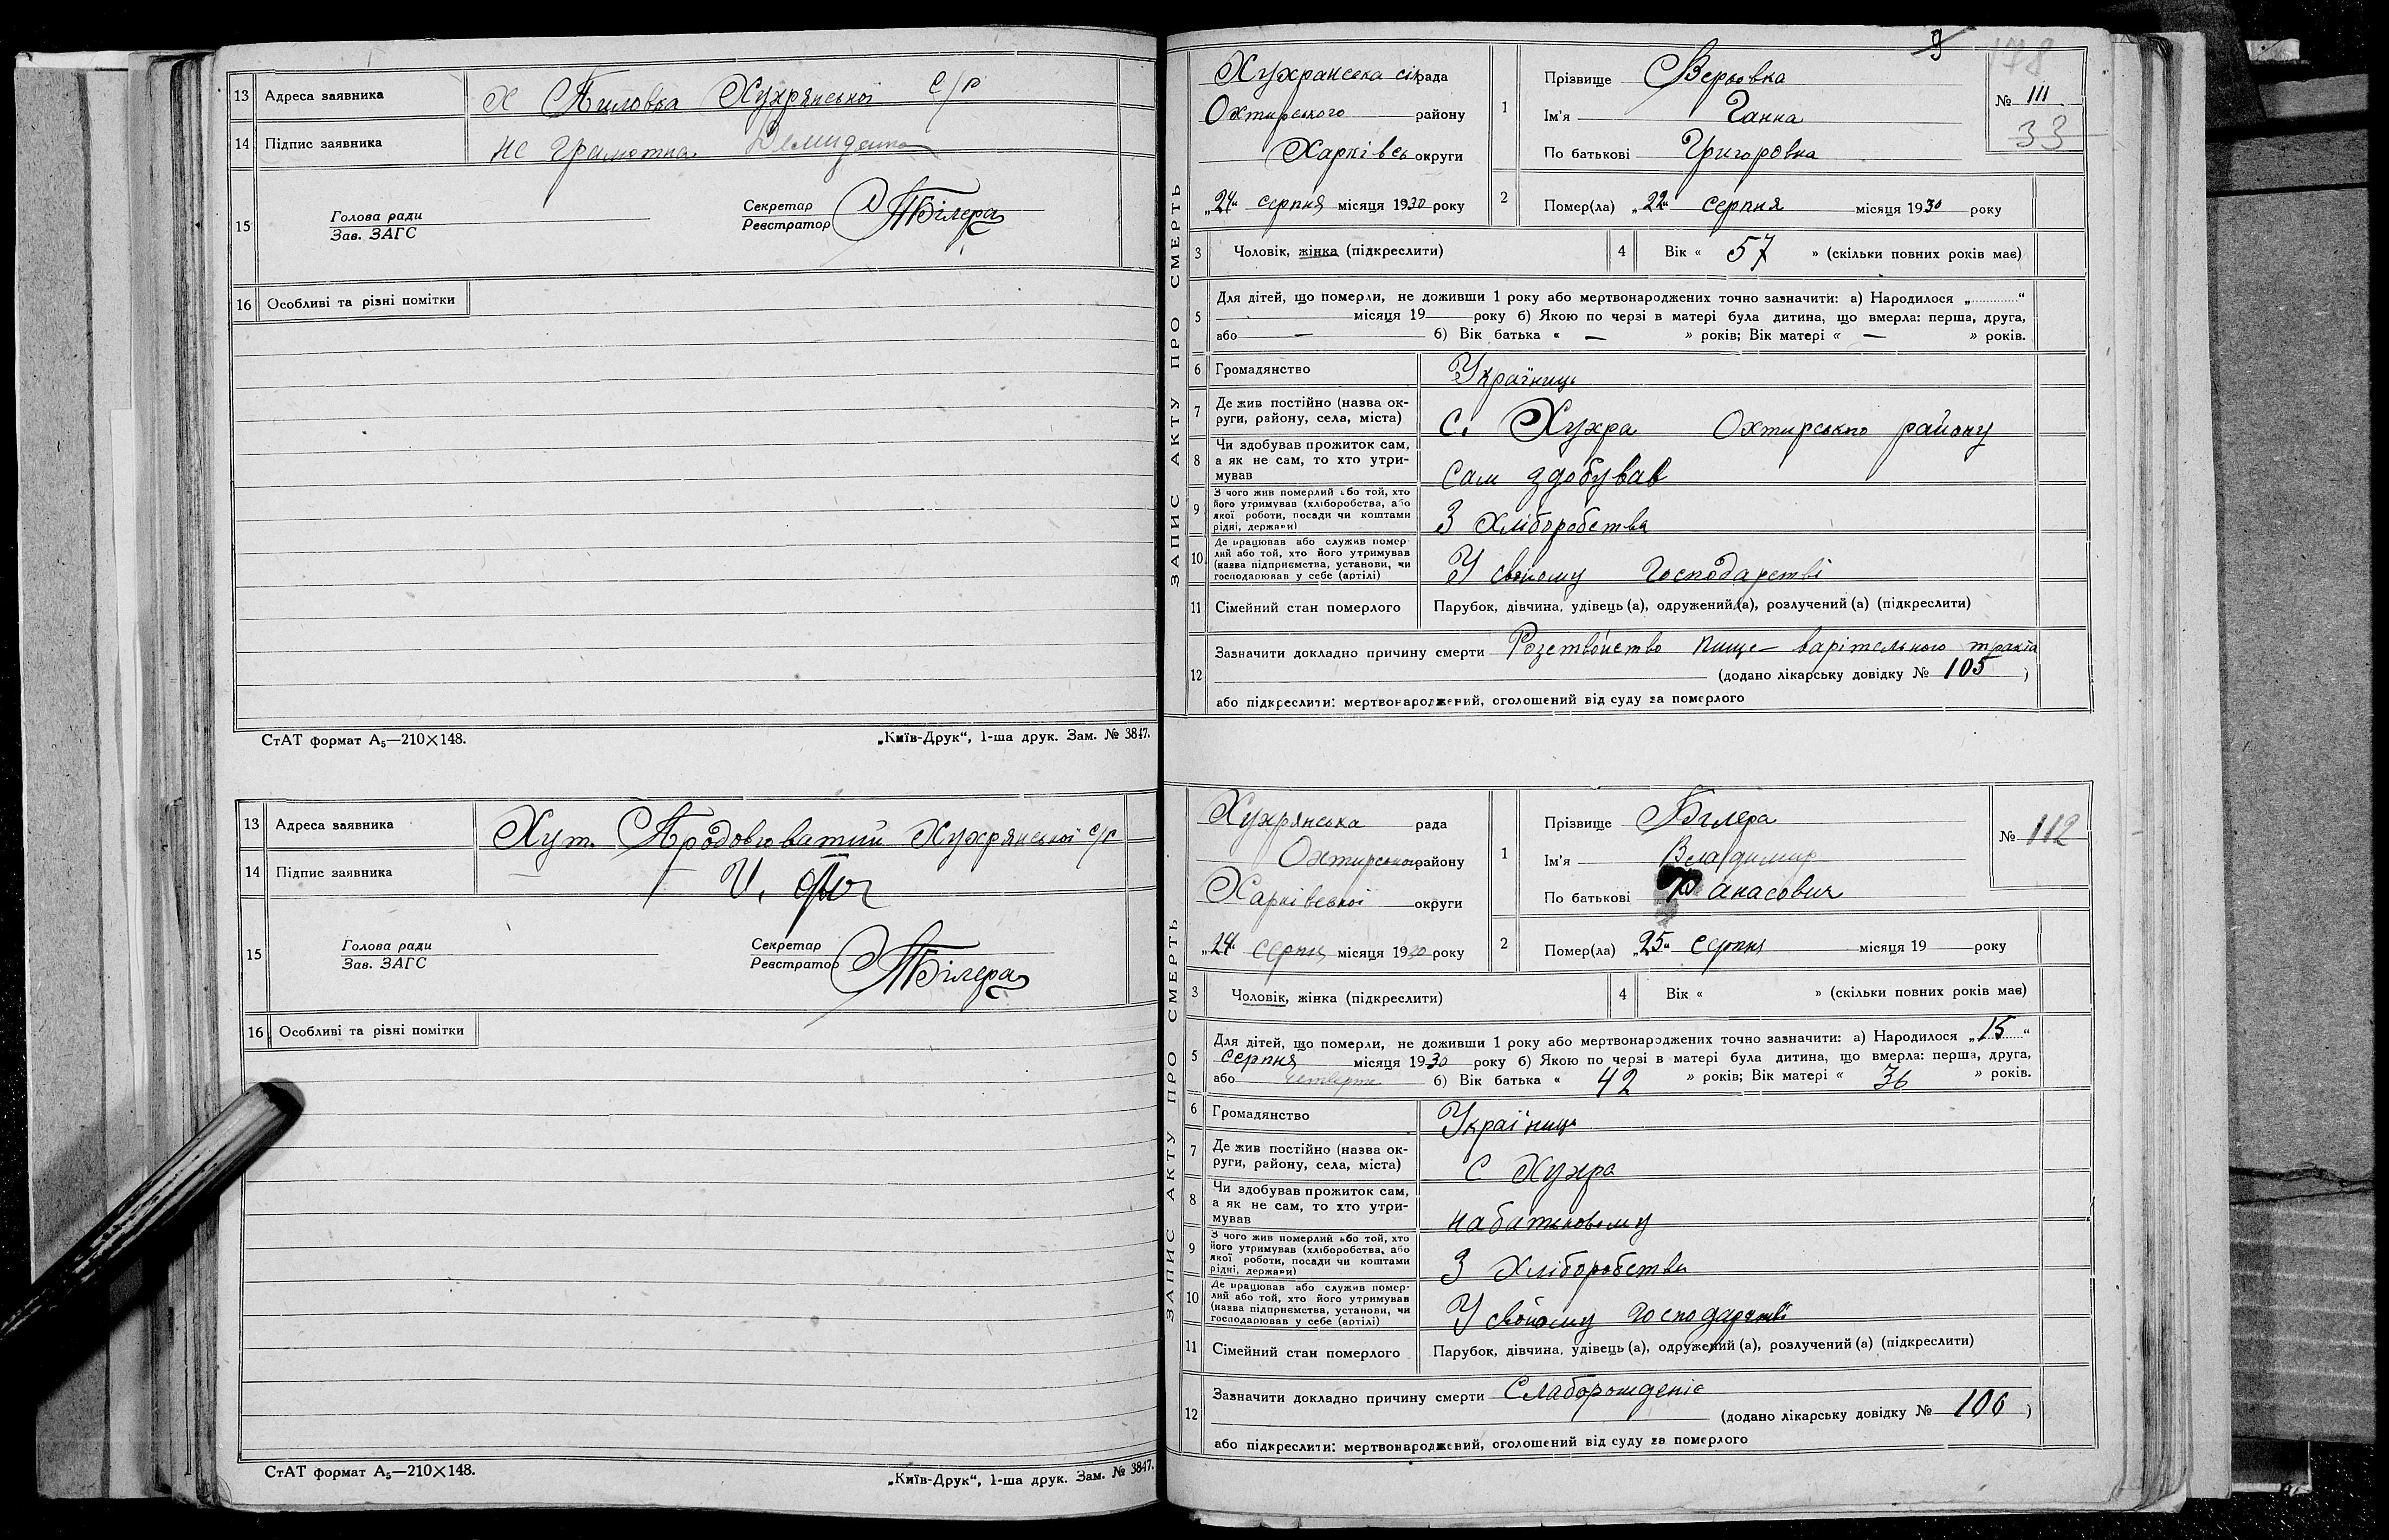 13 Адреса заявника Х Пиловка Хухрянської с/р
14 Підпис заявника не грамотна Демиденко
15 Голова ради Зав. ЗАГС Секретар Реєстратор Білера
16 Особливі та різні помітки
СтАТ формат А₅—210×148. „Київ-Друк“, 1-ша друк. Зам. № 3847.
13 Адреса заявника Хут. Продовгуватий Хухрянської с/р
14 Підпис заявника
15 Голова ради Зав. ЗАГС Секретар Реєстратор Білера
16 Особливі та різні помітки
СтАТ формат А₅—210×148. „Київ-Друк“, 1-ша друк. Зам. № 3847.
9 178
ЗАПИС АКТУ ПРО СМЕРТЬ
Хухранська сільрада
Охтирського району
Харківсь округи
„24“ серпня місяця 1930 року
1 Прізвище Верьовка
Ім'я Ганна
По батькові Григоровна
№ 111
33
2 Помер(ла) „22“ серпня місяця 1930 року
3 Чоловік, жінка (підкреслити) 4 Вік « 57 » (скільки повних років має)
5 Для дітей, що померли, не доживши 1 року або мертвонароджених точно зазначити: а) Народилося „ “
місяця 19 року б) Якою по черзі в матері була дитина, що вмерла: перша, друга,
або — б) Вік батька « — » років; Вік матері « — » років.
6 Громадянство Україниць
7 Де жив постійно (назва округи, району, села, міста) с. Хухра Охтирсько району
8 Чи здобував прожиток сам, а як не сам, то хто утримував сам здобував
9 З чого жив померлий або той, хто його утримував (хліборобства, або якої роботи, посади чи коштами рідні, держави) З хліборобства
10 Де працював або служив померлий або той, хто його утримував (назва підприємства, установи, чи господарював у себе (артілі) У свойому господарстві
11 Сімейний стан померлого Парубок, дівчина, удівець (а), одружений (а), розлучений (а) (підкреслити)
12 Зазначити докладно причину смерти Розствойство пище-варітельного тракта
(додано лікарську довідку № 105 )
або підкреслити: мертвонароджений, оголошений від суду за померлого
ЗАПИС АКТУ ПРО СМЕРТЬ
Хухрянська рада
Охтирського району
Харківської округи
„24“ серпня місяця 1930 року
1 Прізвище Білера
Ім'я Владимир
По батькові Панасович
№ 112
2 Помер(ла) „25“ серпня місяця 19 року
3 Чоловік, жінка (підкреслити) 4 Вік « » (скільки повних років має)
5 Для дітей, що померли, не доживши 1 року або мертвонароджених точно зазначити: а) Народилося „15“
серпня місяця 1930 року б) Якою по черзі в матері була дитина, що вмерла: перша, друга,
або четверте б) Вік батька « 42 » років; Вік матері « 36 » років.
6 Громадянство Українищ
7 Де жив постійно (назва округи, району, села, міста) с Хухра
8 Чи здобував прожиток сам, а як не сам, то хто утримував на батьковому
9 З чого жив померлий або той, хто його утримував (хліборобства, або якої роботи, посади чи коштами рідні, держави) З хліборобства
10 Де працював або служив померлий або той, хто його утримував (назва підприємства, установи, чи господарював у себе (артілі) У свойому господарстві
11 Сімейний стан померлого Парубок, дівчина, удівець (а), одружений (а), розлучений (а) (підкреслити)
12 Зазначити докладно причину смерти Слаборожденіє
(додано лікарську довідку № 106 )
або підкреслити: мертвонароджений, оголошений від суду за померлого